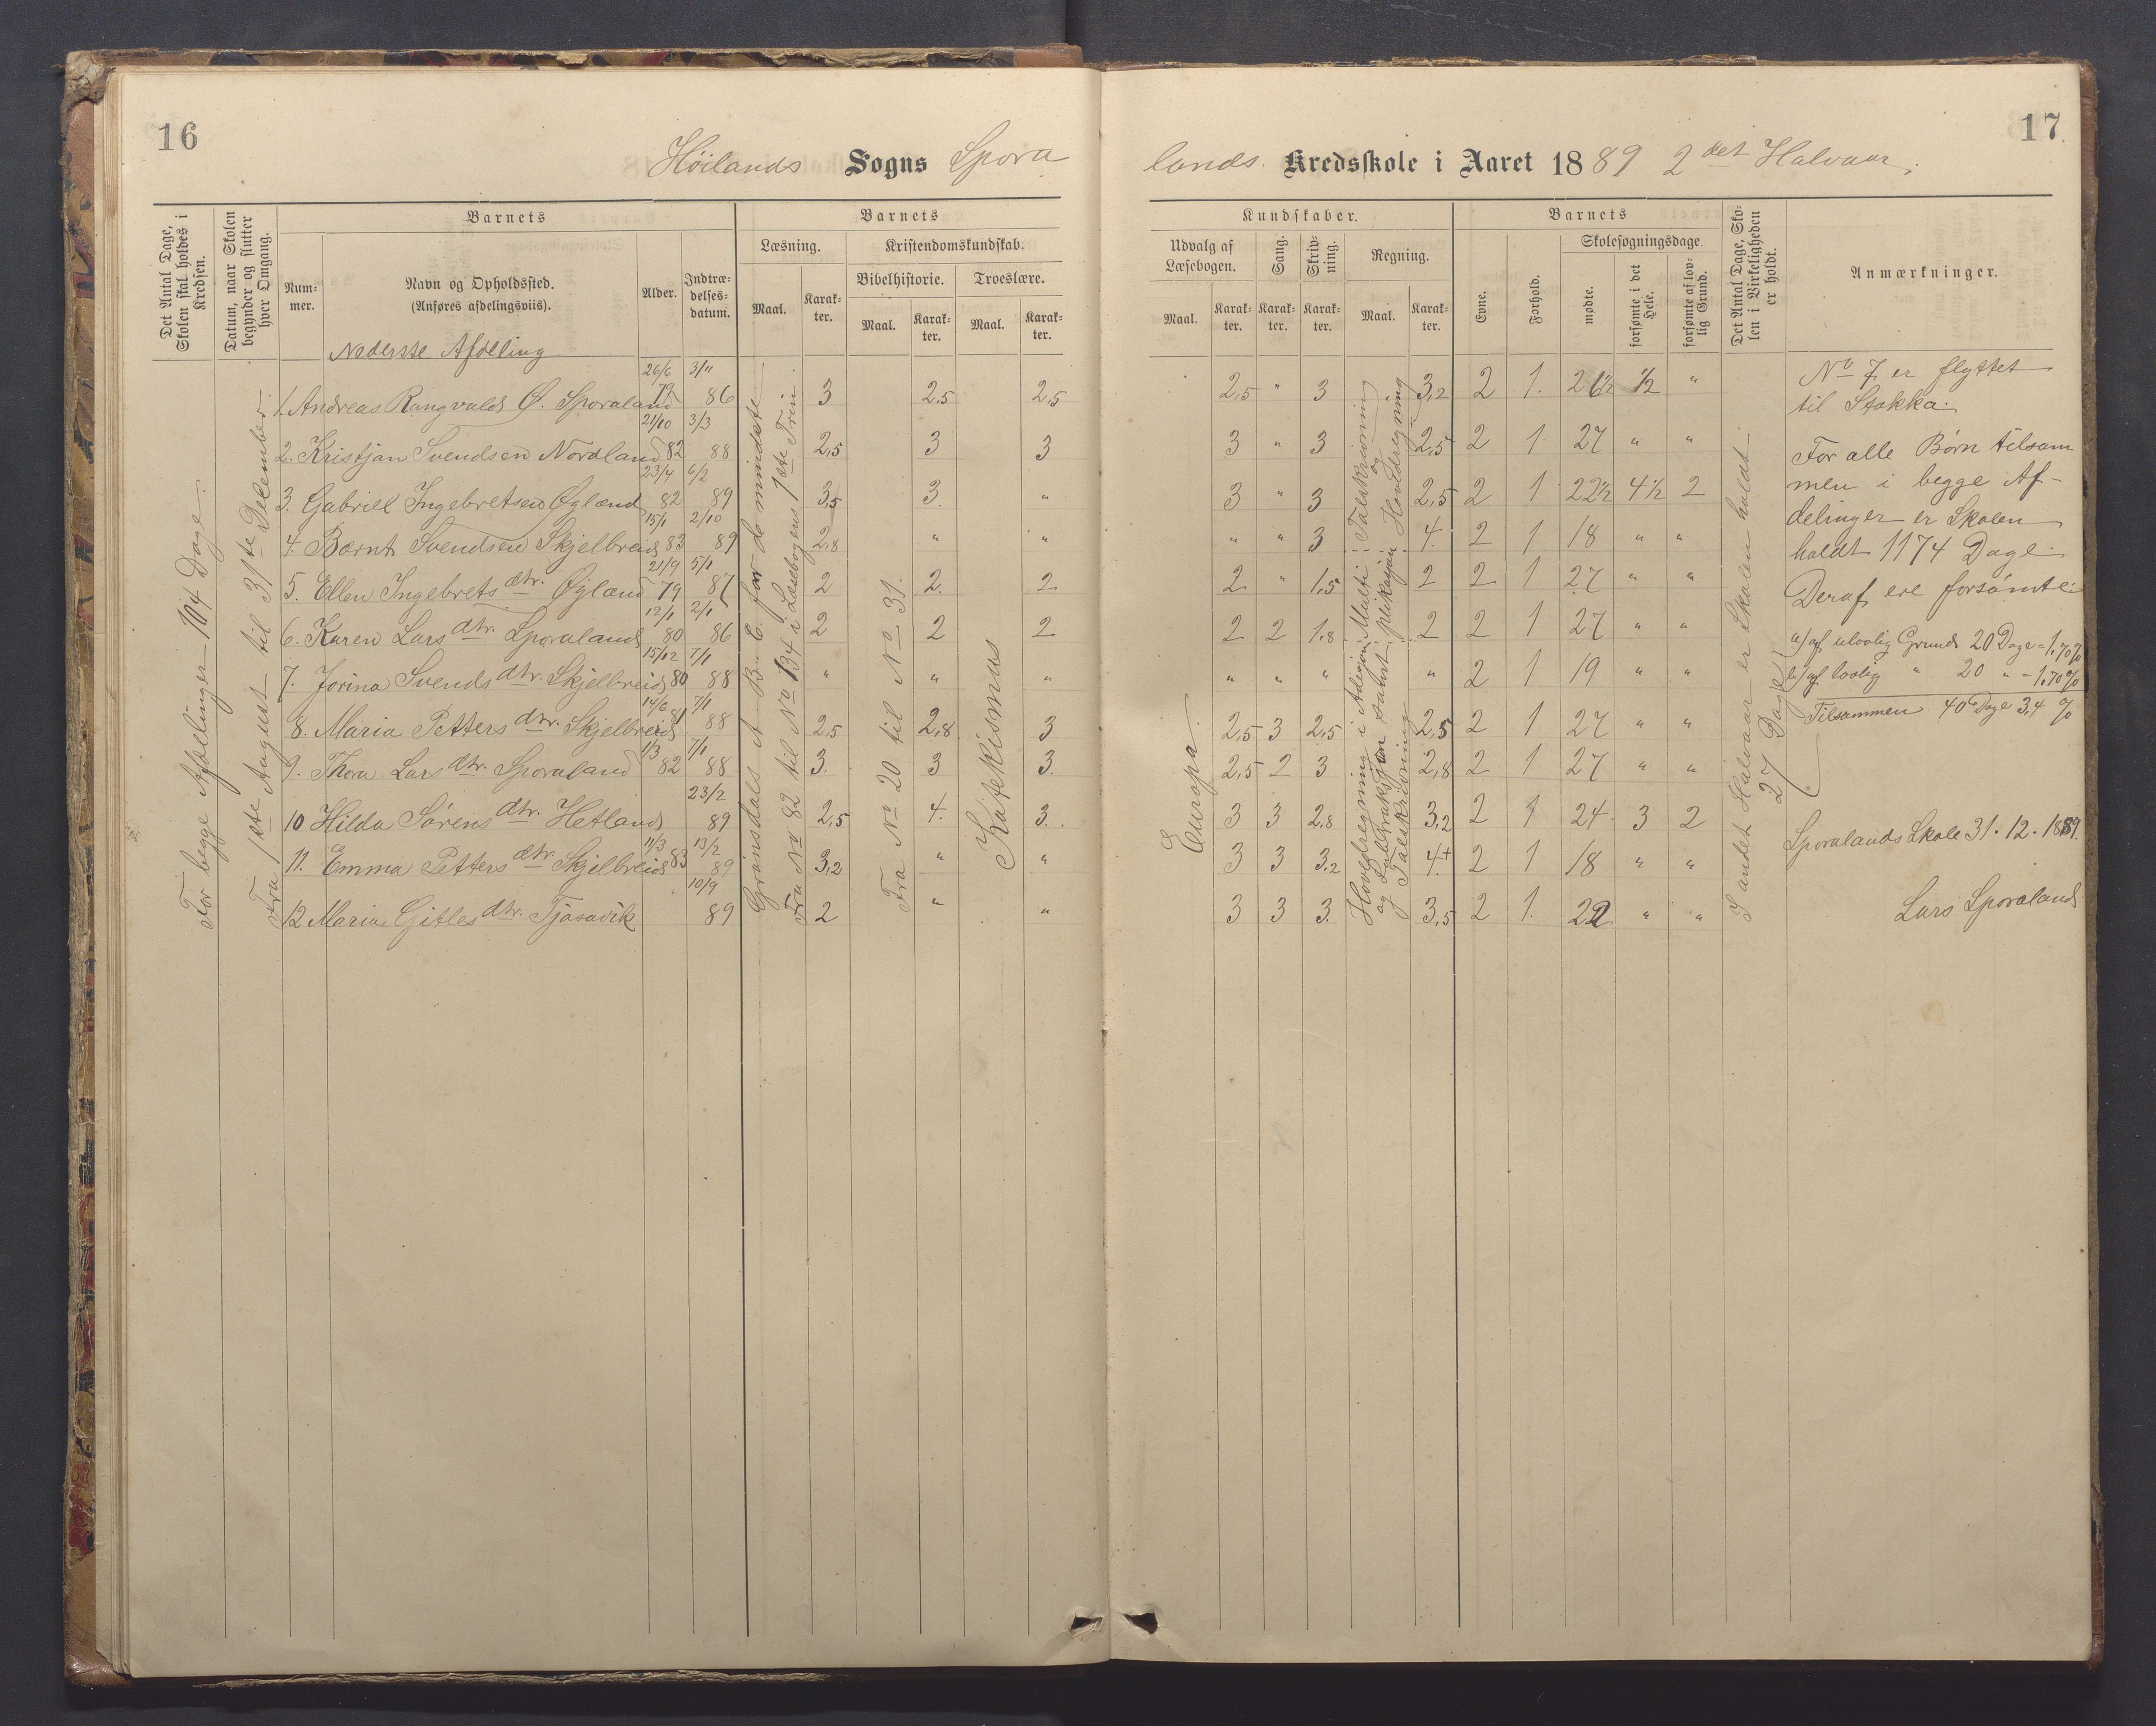 16
Höilands Sogns Spora
Det Antal Dage, Skolen skal holdes i Kredsen.
Datum, naar Skolen begynder og slutter hver Omgang.
Barnets
Num-mer.
Navn og Opholdssted.
(Anføres afdelingsviis).
Alder.
Indtræ-delses-datum.
Barnets
Læsning.
Maal.
Karak-ter.
Kristendomskundskab.
Bibelhistorie.
Maal.
Karak-ter.
Troeslære.
Maal.
Karak-ter.
Nederste Afdeling
For begge Afdelinger 104 Dage.
Fra 1ste August til 31te December.
Grønsdals A B C for de mindste.
Fra No 82 til No 134 i Læsebogens 1ste Trin.
Fra No 20 til No 31.
Katekismus
1. Andreas Rangvalds Ø. Sporaland 26/6 79 3/11 86 3 2,5 2,5
2. Kristjan Svendsen Nordland 21/10 82 3/3 88 2,5 3 3
3. Gabriel Ingebretsen Øgland 23/4 82 6/2 89 3,5 3. "
4. Bærnt Svendsen Skjelbreid 15/1 83 2/10 89 2,8 " "
5. Ellen Ingebrets dtr. Øgland 21/9 79 5/1 87 2 2. 2
6. Karen Lars dtr. Sporaland 12/1 80 2/1 86 2 2 2
7. Jorina Svends dtr. Skjelbreid 15/12 80 7/1 88 " " "
8. Maria Petters dtr. Skjelbreid 14/6 81 7/1 88 2,5 2,8 3
9. Thora Lars dtr. Sporaland 1/3 82 7/1 88 3. 3 3.
10 Hilda Sørens dtr. Hetland 23/2 89 2,5 4. 3.
11. Emma Petters dtr. Skjelbreid 11/3 83 13/2 89 3,2 " "
12 Maria Gitles dtr. Tjasavik 10/9 89 2 " "
17
lands Kredsskole i Aaret 1889 2det Halvaar.
Kundskaber.
Udvalg af Læsebogen.
Maal.
Karak-ter.
Sang.
Karak-ter.
Skriv-ning.
Karak-ter.
Regning.
Maal.
Karak-ter.
Barnets
Evne.
Forhold.
Skolesøgningsdage.
mødte.
forsømte i det Hele.
forsømte af lov-lig Grund.
Det Antal Dage, Sko-len i Virkeligheden er holdt.
Anmærkninger.
Europa.
Hovedregning i Adisjon, Multi-
og Subtraksjon samt plikasjon.
Talskrivning
Talskrivning
og
Hovedregning
I andet Halvaar er Skolen holdt
27 Dage
2,5 " 3 3,2 2 1. 26½ ½ "
3 " 3 2,5 2 1 27 " "
3 " 3 2,5 2 1 22½ 4½ 2
" " 3 4. 2 1 18 " "
2 " 1,5 2 2 1 27 " "
2 2 1,8 2 2 1 27 " "
" " " " 2 1 19 " "
2,5 3 2,5 2,5 2 1 27 " "
2,5 2 3 2,8 2 1 27 " "
3 3 2,8 3,2 2 1 24 3 2
3 3 3,2 4+ 2 1 18 " "
3 3 3. 3,5 2 1. 22 " "
No 7 er flyttet
til Stokka.
For alle Børn tilsam
men i begge Af-
delinger er Skolen
holdt 1174 Dage.
Deraf ere forsømte
a) af ulovlig Grund 20 Dage = 1,70%
b) af lovlig " 20 " - 1,70%
Tilsammen 40 Dage 3,4 %
Sporalands Skole 31.12.1889.
Lars Sporaland